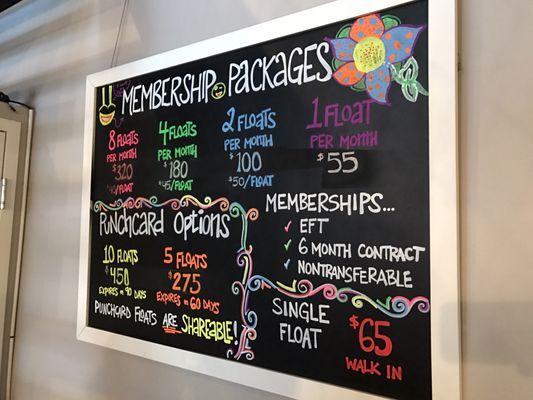 MEMBERSHIP PACKAGES
8 FLOATS
PER MONTH
$320
$40/FLOAT
4 FLOATS
PER MONTH
$180
$45/FLOAT
2 FLOATS
PER MONTH
$100
$50/FLOAT
1 FLOAT
PER MONTH
$55
PUNCHCARD OPTIONS
10 FLOATS
$450
EXPIRES IN 90 DAYS
5 FLOATS
$275
EXPIRES IN 60 DAYS
PUNCHCARD FLOATS ARE SHAREABLE!
MEMBERSHIPS...
✓ EFT
✓ 6 MONTH CONTRACT
✓ NONTRANSFERABLE
SINGLE FLOAT
$65
WALK IN